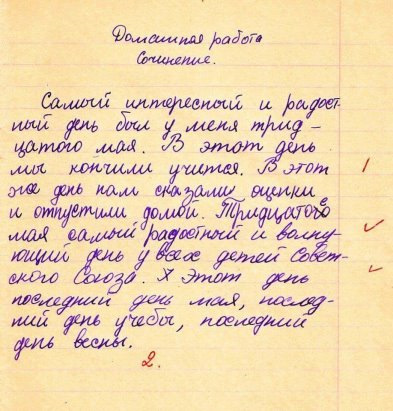 Домашная работа
Сочинение.
Самый интересный и радост
ный день был у меня трид-
цатого мая. В этот день
мы кончили учится. В этот
же день нам сказали оценки
и отпустили домой. Тридцатого
мая самый радостный и волну-
ющий день у всех детей Совет-
ского Союза. Этот день
последний день мая, послед-
ний день учебы, последний
день весны.
2.